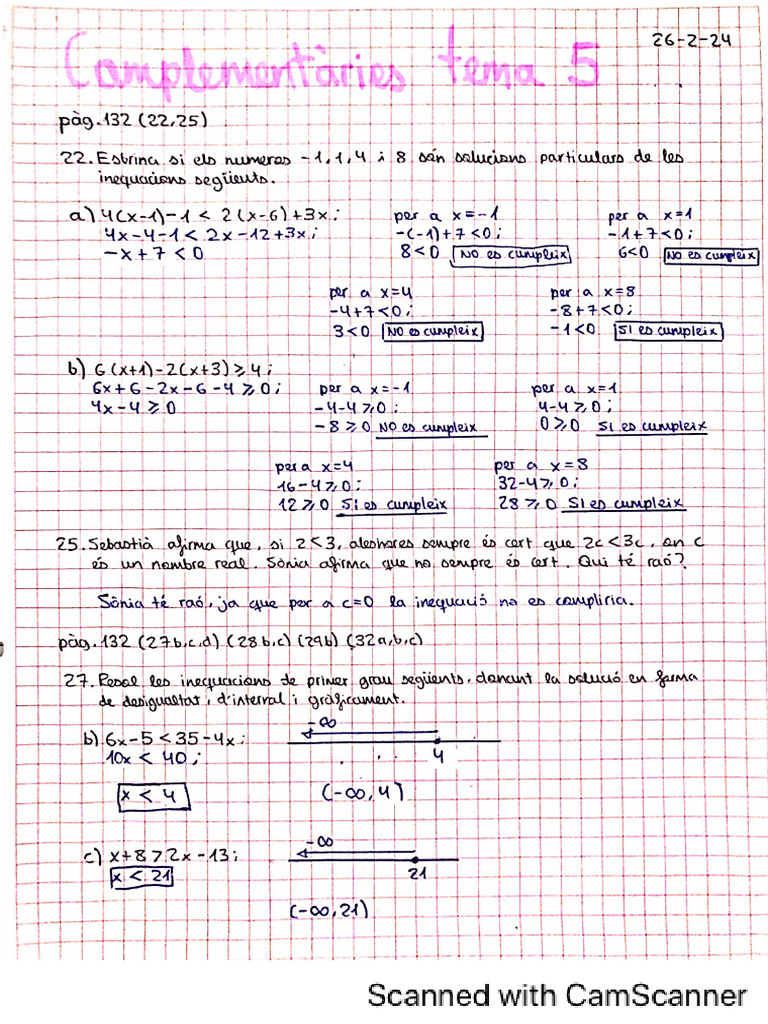 Complementàries tema 5
26-2-24
pàg.132 (22,25)
22. Esbrina si els numeros -1, 1, 4 i 8 són solucions particulars de les
inequacions següents.
a) 4(x-1)-1 < 2(x-6)+3x;
4x-4-1 < 2x-12+3x;
-x+7 < 0
per a x=-1
-(-1)+7 < 0;
8<0 NO es cumpleix
per a x=1
-1+7 < 0;
6<0 NO es cumpleix
per a x=4
-4+7<0;
3<0 NO es cumpleix
per a x=8
-8+7<0;
-1<0 SI es cumpleix
b) 6(x+1)-2(x+3) ⩾ 4;
6x+6-2x-6-4 ⩾ 0;
4x-4 ⩾ 0
per a x=-1
-4-4 ⩾ 0;
-8 ⩾ 0 NO es cumpleix
per a x=1
4-4 ⩾ 0;
0 ⩾ 0 SI es cumpleix
per a x=4
16-4 ⩾ 0;
12 ⩾ 0 SI es cumpleix
per a x=8
32-4 ⩾ 0;
28 ⩾ 0 SI es cumpleix
25. Sebastià afirma que, si 2<3, aleshores sempre és cert que 2c<3c, on c
és un nombre real. Sònia afirma que no sempre és cert. Qui té raó?
Sònia té raó, ja que per a c=0 la inequació no es compliria.
pàg.132 (27b,c,d) (28b,c) (29b) (32a,b,c)
27. Resol les inequacions de primer grau següents, donant la solució en forma
de desigualtat, d'interval i gràficament.
b) 6x-5 < 35-4x;
10x < 40;
x < 4
-∞
4
(-∞, 4)
c) x+8 > 2x-13;
x < 21
-∞
21
(-∞, 21)
Scanned with CamScanner